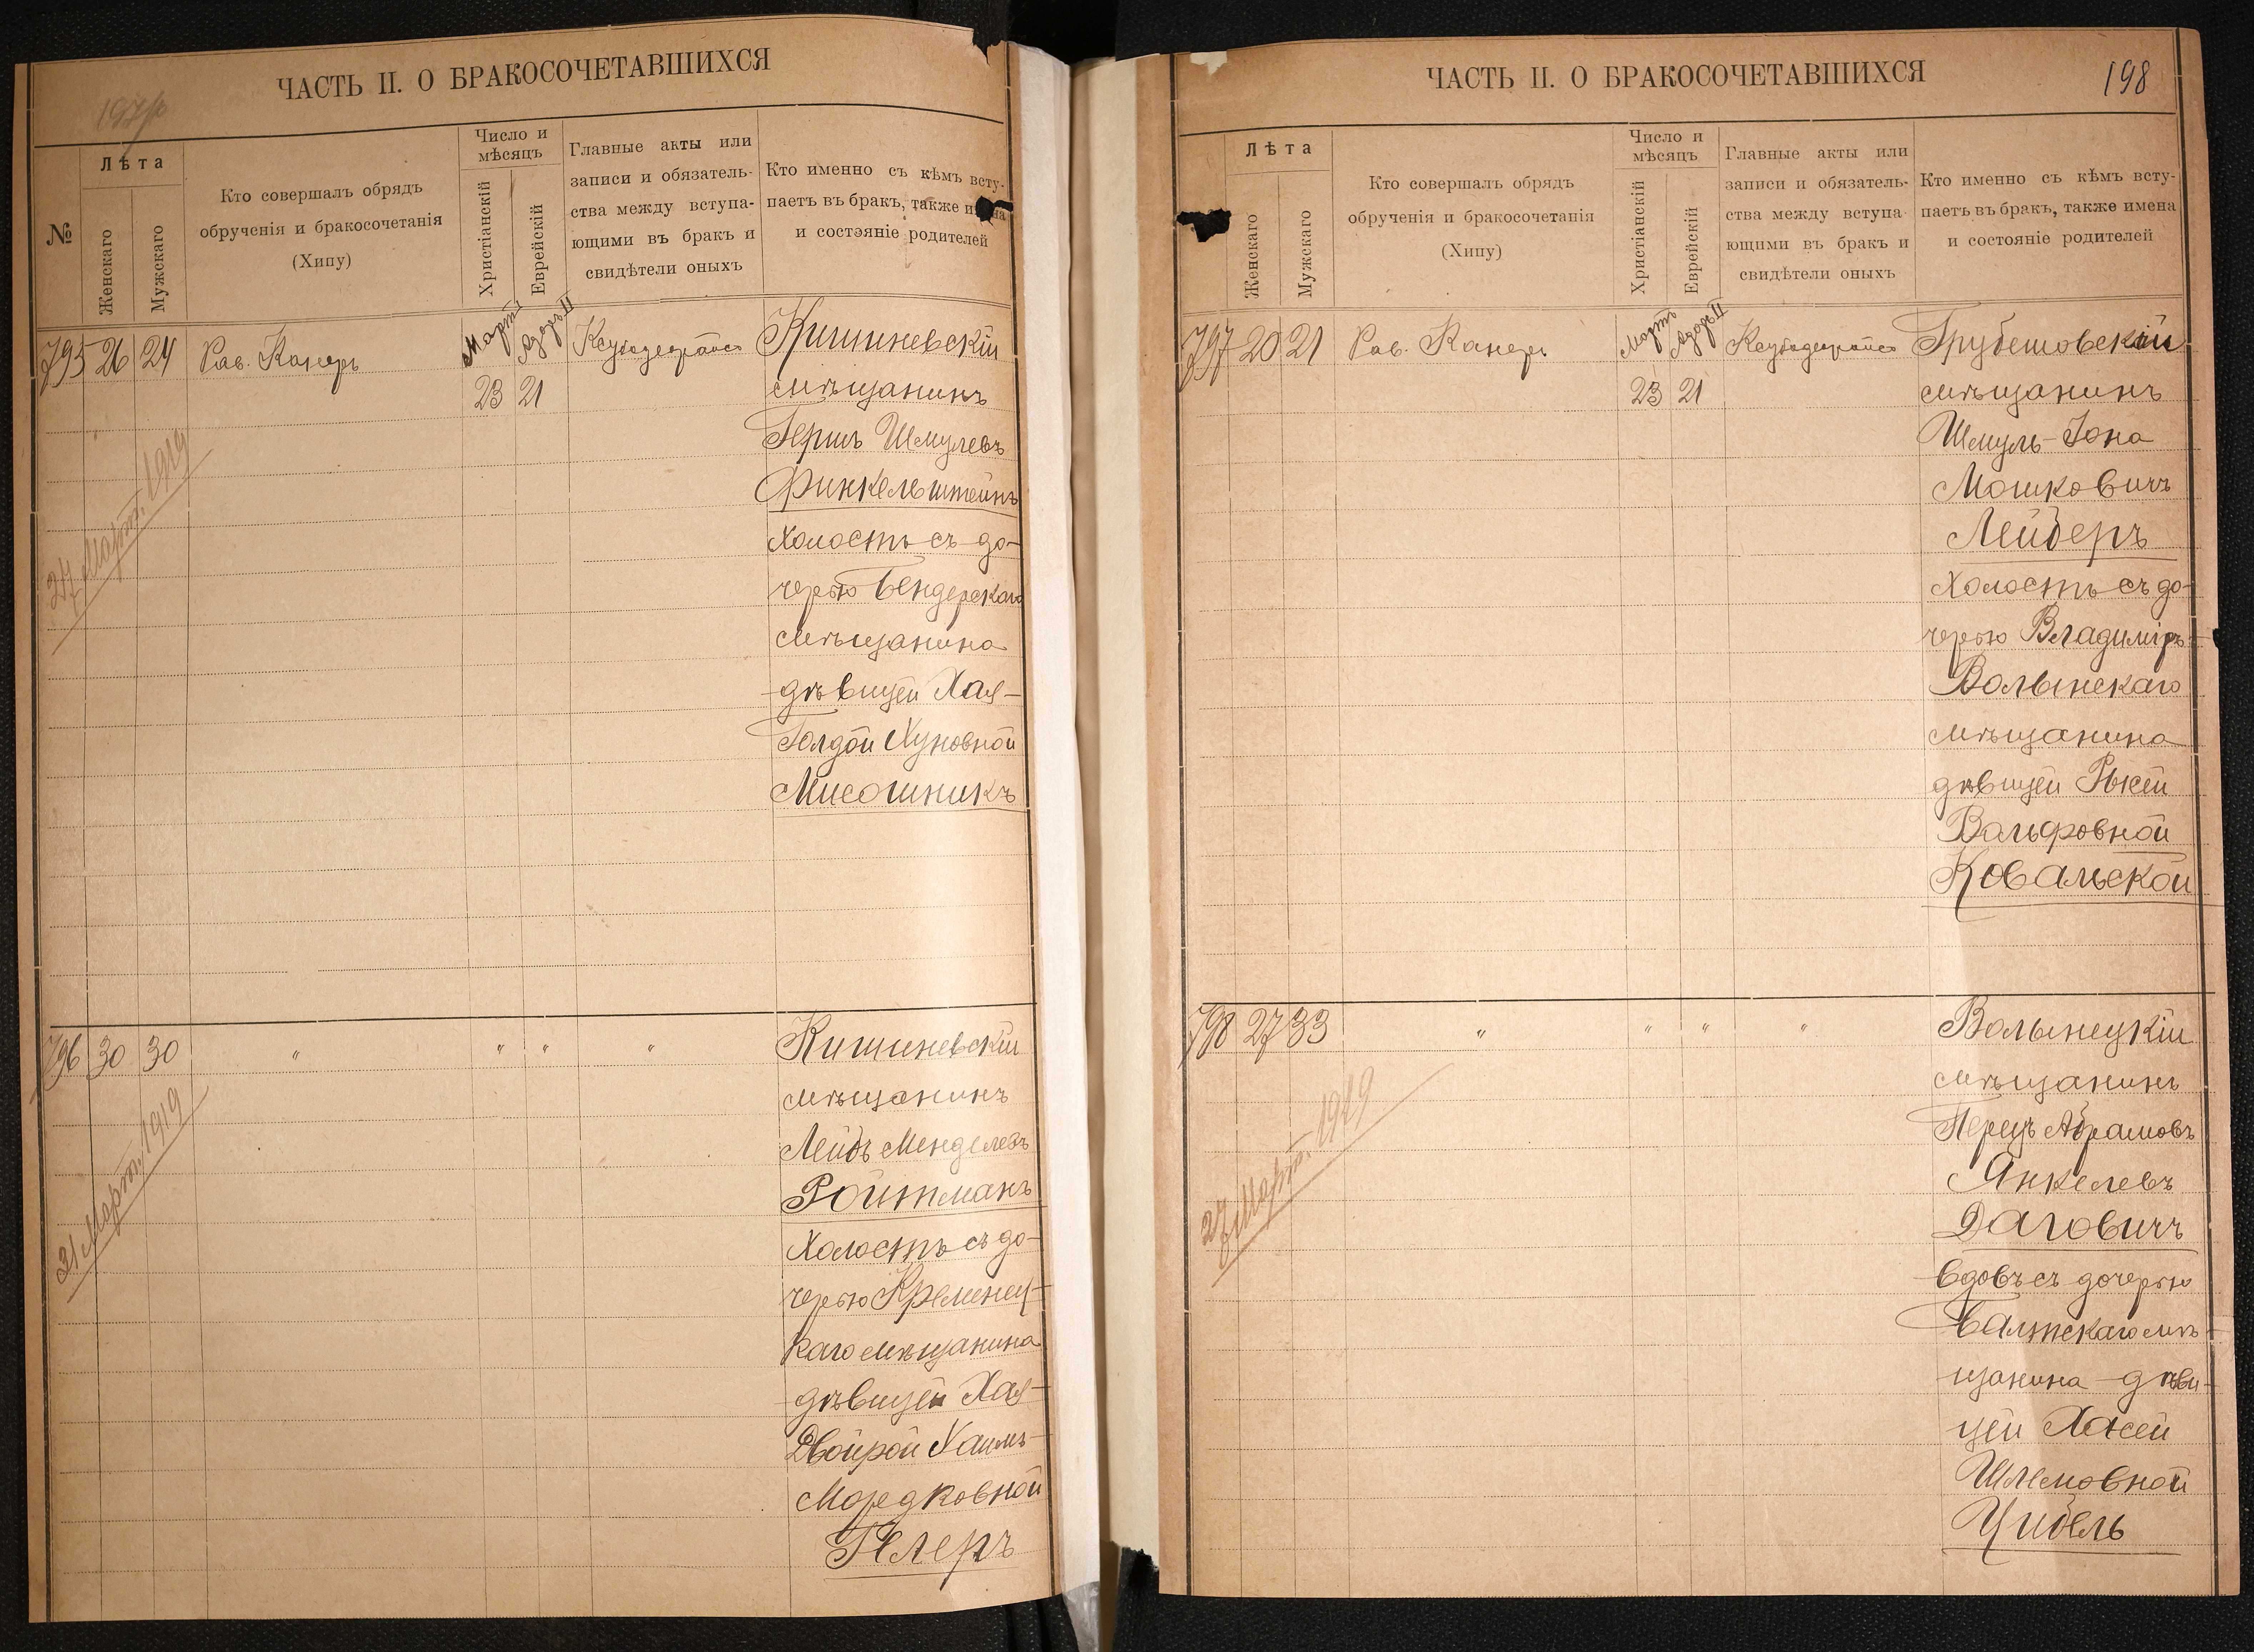 ЧАСТЬ II. О БРАКОСОЧЕТАВШИХСЯ
№
Лѣта
Женскаго
Мужскаго
Кто совершалъ обрядъ
обрученія и бракосочетанія
(Хипу)
Число и
мѣсяцъ
Христіанскій
Еврейскій
Главные акты или
записи и обязатель-
ства между вступа-
ющими въ бракъ и
свидѣтели оныхъ
Кто именно съ кѣмъ всту-
паетъ въ бракъ, также
и состояніе родителей
795 26 24 Рав. Канеръ Мартъ Адоръ II Кишиневскій
23 21 мѣщанинъ
Гершъ Шмулевъ
Финкельштейнъ
холостъ съ до-
черью Бендерскаго
мѣщанина
дѣвицей Хая-
Голдой Хуновной
Мисошникъ
27 Март. 1919
796 30 30 " " " " Кишиневскій
мѣщанинъ
Лейбъ Менделевъ
Ройтманъ
холостъ съ до-
черью Кременец-
каго мѣщанина
дѣвицей Хая-
Двойрой Хаимъ-
Мордковной
Гелеръ
31 Март. 1919
ЧАСТЬ II. О БРАКОСОЧЕТАВШИХСЯ
198
Лѣта
Женскаго
Мужскаго
Кто совершалъ обрядъ
обрученія и бракосочетанія
(Хипу)
Число и
мѣсяцъ
Христіанскій
Еврейскій
Главные акты или
записи и обязатель-
ства между вступа-
ющими въ бракъ и
свидѣтели оныхъ
Кто именно съ кѣмъ всту-
паетъ въ бракъ, также имена
и состояніе родителей
797 20 21 Рав. Канеръ Мартъ Адоръ II Грубешовскій
23 21 мѣщанинъ
Шмуль-Іона
Мошковичъ
Лейберъ
холостъ съ до-
черью Владиміръ-
Волынскаго
мѣщанина
дѣвицей Рысей
Вольфовной
Ковальской
798 27 33 " " " " Волынецкій
мѣщанинъ
Перецъ Абрамовъ
Янкелевъ
Даговичъ
вдовъ съ дочерью
Балтскаго мѣ-
щанина дѣви-
цей Хасей
Шлемовной
Цибель
27 Март. 1919